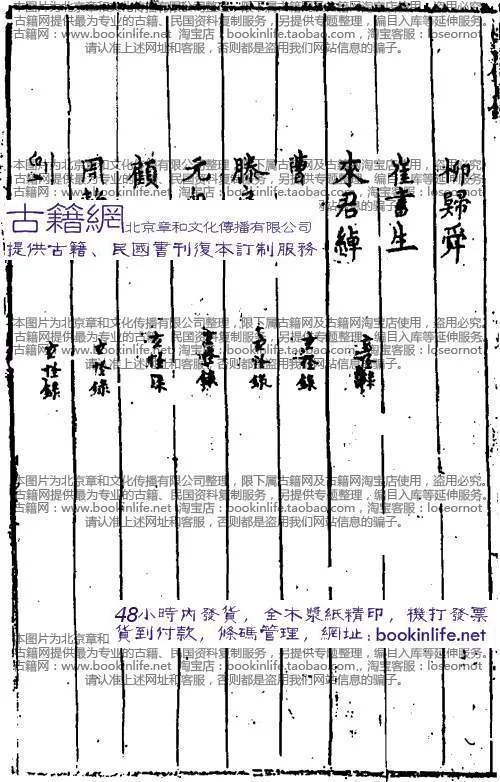 柳歸舜
崔書生
來君綽
玄怪錄
曹
玄怪錄
滕
玄怪錄
元
玄怪錄
顧
玄怪錄
周
玄怪錄
劉
玄怪錄
本图片为北京章和文化传播有限公司整理，限下属古籍网及古籍网淘宝店使用，盗用必究。
古籍网提供最为专业的古籍、民国资料复制服务，另提供专题整理，编目入库等延伸服务。
古籍网：www.bookinlife.net 淘宝店：bookinlife.taobao.com，淘宝客服：loseornot
请认准上述网址和客服，否则都是盗用我们网站信息的骗子。
本图片为北京章和文化传播有限公司整理，限下属古籍网及古籍网淘宝店使用，盗用必究。
古籍网提供最为专业的古籍、民国资料复制服务，另提供专题整理，编目入库等延伸服务。
古籍網北京章和文化傳播有限公司
提供古籍、民國書刊復本訂制服務
本图片为北京章和文化传播有限公司整理，限下属古籍网及古籍网淘宝店使用，盗用必究。
古籍网提供最为专业的古籍、民国资料复制服务，另提供专题整理，编目入库等延伸服务。
古籍网：www.bookinlife.net 淘宝店：bookinlife.taobao.com，淘宝客服：loseornot
请认准上述网址和客服，否则都是盗用我们网站信息的骗子。
本图片为北京章和文化传播有限公司整理，限下属古籍网及古籍网淘宝店使用，盗用必究。
古籍网提供最为专业的古籍、民国资料复制服务，另提供专题整理，编目入库等延伸服务。
古籍网：www.bookinlife.net 淘宝店：bookinlife.taobao.com，淘宝客服：loseornot
请认准上述网址和客服，否则都是盗用我们网站信息的骗子。
48小時內發貨，全木漿紙精印，機打發票
貨到付款，條碼管理，網址：bookinlife.net
本图片为北京章和
古籍网提供最为专业的古籍、民国资料复制服务，另提供专题整理，编目入库等延伸服务。
古籍网：www.bookinlife.net 淘宝店：bookinlife.taobao.com，淘宝客服：loseornot
请认准上述网址和客服，否则都是盗用我们网站信息的骗子。